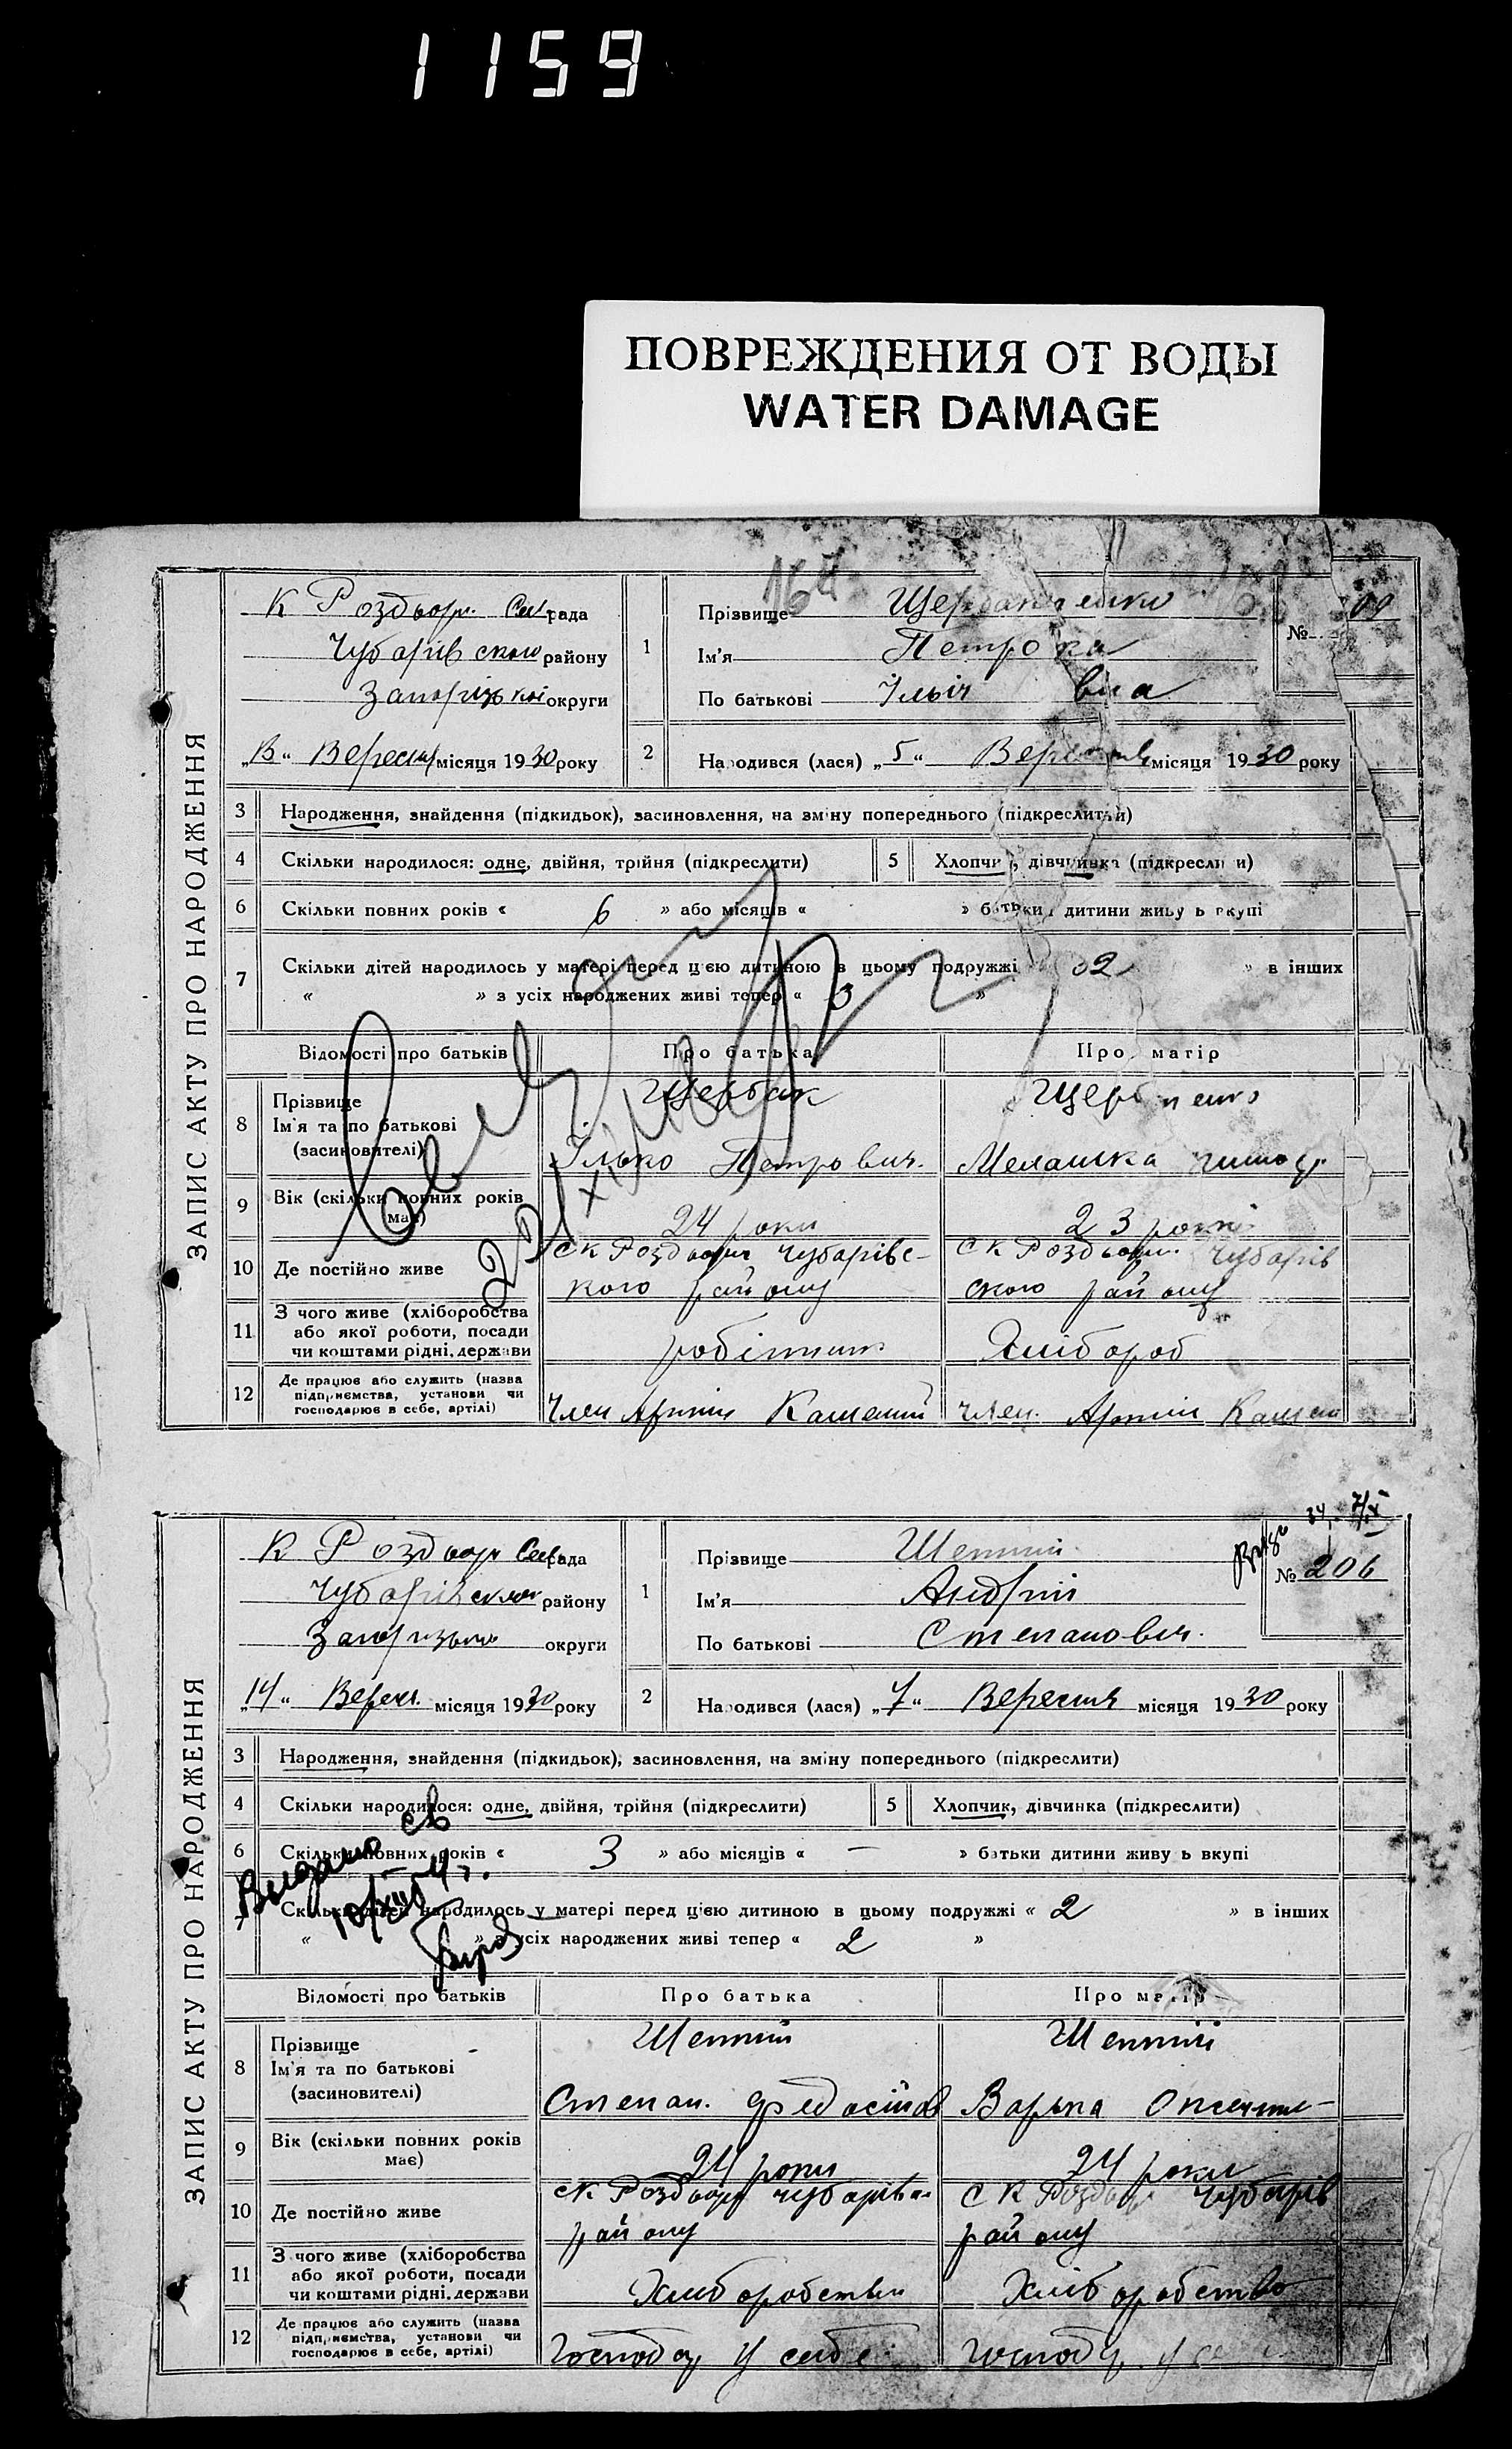 1159
ПОВРЕЖДЕНИЯ ОТ ВОДЫ
WATER DAMAGE
ЗАПИС АКТУ ПРО НАРОДЖЕННЯ
164
К Роздори Сел рада
Чубарівского району
Запорізької округи
„В“ Вересня місяця 1930 року
1
Прізвище
Ім'я Петро
По батькові Ільіч вна
№ 09
2 Народився (лася) „5“ Вересня місяця 1930 року
3 Народження, знайдення (підкидьок), засиновлення, на зміну попереднього (підкреслити)
4 Скільки народилося: одне, двійня, трійня (підкреслити) 5 Хлопчик, дівчинка (підкреслити)
6 Скільки повних років « 6 » або місяців « » батьки дитини живуть вкупі
7 Скільки дітей народилось у матері перед цією дитиною в цьому подружжі 2 » в інших
« » з усіх народжених живі тепер « 3 »
Відомості про батьків Про батька Про матір
8 Прізвище
Ім'я та по батькові
(засиновителі)
Щербак
Ілько Петрович.
Мелашка
9 Вік (скільки повних років має) 24 роки 23 роки
10 Де постійно живе
СК Роздори Чубарівс-
кого району
СК Роздори Чубарів
ского району
11 З чого живе (хліборобства
або якої роботи, посади
чи коштами рідні, держави
робітник Хлібороб
12 Де працює або служить (назва
підприємства, установи чи
господарює в себе, артілі)
Член Артіли Член Артіли
ЗАПИС АКТУ ПРО НАРОДЖЕННЯ
К Роздори Сел рада
Чубарівского району
округи
„14“ Вересн. місяця 1930 року
1
Прізвище
Ім'я Андрій
По батькові Степанович.
№ 206
2 Народився (лася) „7“ Вересня місяця 1930 року
3 Народження, знайдення (підкидьок), засиновлення, на зміну попереднього (підкреслити)
4 Скільки народилося: одне, двійня, трійня (підкреслити) 5 Хлопчик, дівчинка (підкреслити)
6 Скільки повних років « 3 » або місяців « — » батьки дитини живуть вкупі
7 Скільки дітей народилось у матері перед цією дитиною в цьому подружжі « 2 » в інших
« » з усіх народжених живі тепер « 2 »
Выдано св
Відомості про батьків Про батька Про матір
8 Прізвище
Ім'я та по батькові
(засиновителі)
Степан. Федосійов
Варька
9 Вік (скільки повних років має) 24 роки 24 роки
10 Де постійно живе
СК Роздори Чубарівс-
району
СК Роздори Чубарів
району
11 З чого живе (хліборобства
або якої роботи, посади
чи коштами рідні, держави
Хліборобство Хліборобство
12 Де працює або служить (назва
підприємства, установи чи
господарює в себе, артілі)
Господар У себе Господ.